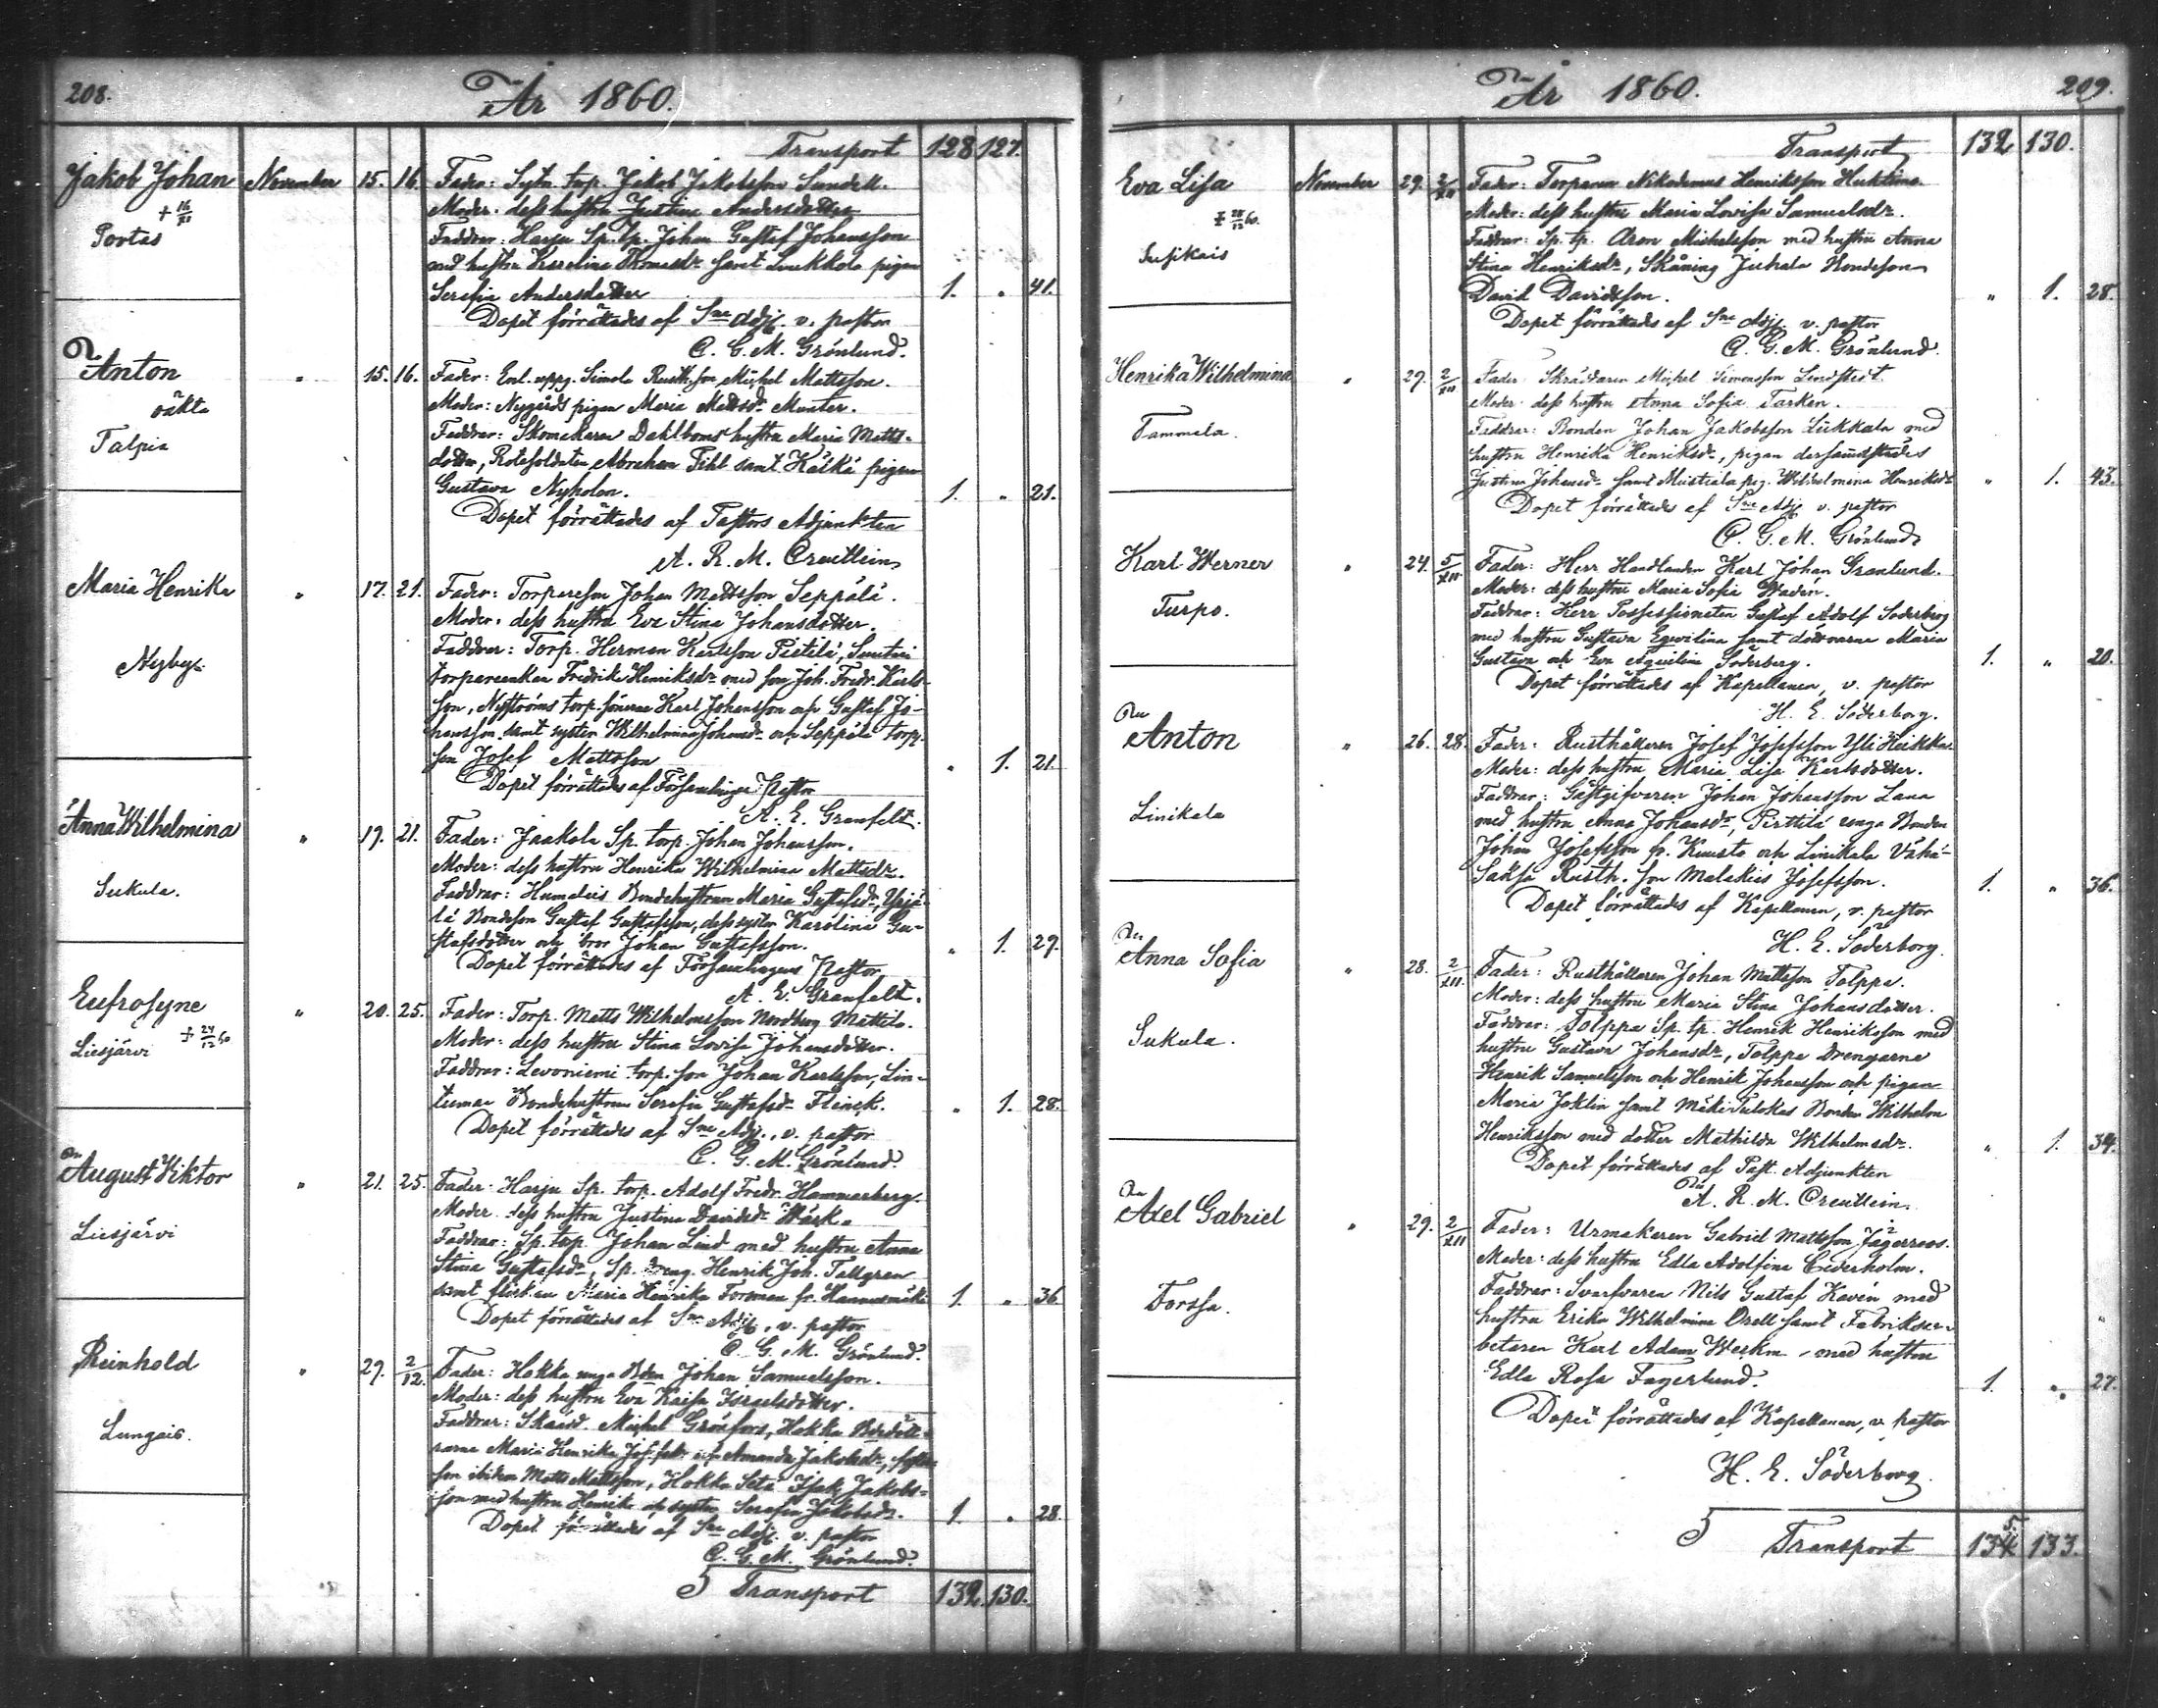 208.
År 1860.
Transport 128 127.
Jakob Johan November 15. 16. Fader: Sytn. torp. Jakob Jakobsson Sundell.
Moder: dess hustru Justina Andersdotter
+ 16/XI
Portas
Faddrar: Harju Sp. tp. Johan Gustaf Johansson
med hustru Karolina Thomasdr samt Loukkola pigan
Serafia Andersdotter 1. " 41.
Dopet förrättades af Sne Adj. v. pastor
C. G. M. Grönlund.
Anton " 15. 16. Fader: Enl. uppg. Simola Rusth.son Michel Mattsson.
oäkta
Moder: Nygårds pigan Maria Mattsdr Munter.
Talpia
Faddrar: Skomakaren Dahlboms hustru Maria Matts-
dotter, Rotesoldaten Abraham Fihl samt Käskä pigan
Gustava Nyholm. 1. " 21.
Dopet förrättades af Pastors Adjunkten
A. R. M. Creutlein
Maria Henrika " 17. 21. Fader: Torparesn Johan Mattsson Seppälä.
Moder: dess hustru Eva Stina Johansdotter.
Nyby
Faddrar: Torp. Herman Karlsson Pietilä,
torpareenkan Fredrika Henriksdr med son Joh. Fredr. Karls-
son, Nyströms torp. sönerne Karl Johansson och Gustaf Jo-
hansson samt syster Wilhelmina Johansdr och Seppälä torp.
son Josef Mattsson " 1. 21.
Dopet förrättades af Församlings Pastor
A. E. Granfelt.
Anna Wilhelmina " 19. 21. Fader: Jaakola Sp. torp. Johan Johansson.
Moder: dess hustru Henrika Wilhelmina Mattsdr.
Sukula.
Faddrar: Humalais Bondehustrun Maria Gustafsdr, Yrjö-
lä Bondeson Gustaf Gustafsson, dess syster Karolina Gu-
stafsdotter och bror Johan Gustafsson. " 1. 29.
Dopet förrättades af Församlingens Pastor
A. E. Granfelt.
Eufrosyne " 20. 25. Fader: Torp. Matts Wilhelmsson Nordberg Mattila.
+ 24/12 60
Liesjärvi
Moder: dess hustru Stina Lovisa Johansdotter.
Faddrar: Levoniemi torp. son Johan Karlsson, Lin-
tumaa Bondehustrun Serafia Gustafsdr Flinck. " 1. 28.
Dopet förrättades af Sne Adj., v. pastor
C. G. M. Grönlund.
August Viktor " 21. 25. Fader: Harju Sp. torp. Adolf Fredr. Hammarberg.
Moder: dess hustru Justina Davidsdr Wärk.
Liesjärvi
Faddrar: Sp. torp. Johan Lind med hustru Anna
Stina Gustafsdr, Sp. dreng. Henrik Joh. Tallgren
samt flickan Maria Henrika Forsman fr. Hannusmäki 1. " 36
Dopet förrättades af Sne Adj., v. pastor
C. G. M. Grönlund.
Reinhold " 29. 2/12. Fader: Hokka unga Bden Johan Samuelsson.
Moder: dess hustru Eva Kaisa Israelsdotter.
Lungais.
Faddrar: Skädd. Michel Grönfors, Hokka Bdedött-
rarna Maria Henrika och Amanda Jakobsdr,
son ibidem Matts Mattsson, Hokka Setä Isak Jakobs-
son med hustru Henrika och syster Serafia Jakobsdr. 1. " 28.
Dopet förrättades af Sne Adj. v. pastor
C. G. M. Grönlund.
5 Transport 132. 130.
År 1860. 209.
Transport 132 130.
Eva Lisa November 29. 2/XII Fader: Torparen Nikodemus Henriksson Huhtimo.
Moder: dess hustru Maria Lovisa Samuelsdr.
+ 28/12 60.
Susikais
Faddrar: Sp. tp. Aron Michelsson med hustru Anna
Stina Henriksdr, Skåning Juhala Bondeson
David Davidsson. " 1. 28.
Dopet förrättades af Sne Adj. v. pastor
C. G. M. Grönlund.
Henrika Wilhelmina " 29. 2/XII Fader: Skräddaren Michel Simonsson Lindstedt.
Moder: dess hustru Anna Sofia Tarken.
Tammela.
Faddrar: Bonden Johan Jakobsson Liikkala med
hustru Henrika Henriksdr, pigan dersammastädes
Justina Johansdr samt Mustiala pig. Wilhelmina Henriksdr " 1. 43.
Dopet förrättades af Sne Adj. v. pastor
C. G. M. Grönlund
Karl Werner " 24. 5/XII Fader: Herr Handlanden Karl Johan Granlund.
Moder: dess hustru Maria Sofia Wadén.
Turpo.
Faddrar: Herr Possessionaten Gustaf Adolf Söderborg
med hustru Gustava Eqvilina samt döttrarna Maria
Gustava och Eva Aquilina Söderberg. 1. " 20.
Dopet förrättades af Kapellanen, v. pastor
H. E. Söderborg.
Anton " 26. 28. Fader: Rusthållaren Josef Josefsson Yli Heikka.
Moder: dess hustru Maria Lisa Karlsdotter.
Linikala
Faddrar: Gästgifvaren Johan Johansson Lana
med hustru Anna Johansdr, Pirttilä unga Bonden
Johan Josefsson fr. Kuusto och Linikala Vähä-
Saksa Rusth. son Malakias Josefsson. 1. " 36.
Dopet förrättades af Kapellanen, v. pastor
H. E. Söderborg
Anna Sofia " 28. 2/XII. Fader: Rusthållaren Johan Mattsson Tolppa.
Moder: dess hustru Maria Stina Johansdotter.
Sukula.
Faddrar: Tolppa Sp. tp. Henrik Henriksson med
hustru Gustava Johansdr, Tolppa drengarna
Henrik Samuelsson och Henrik Johansson och pigan
Maria Joklin samt Mäki Tulokas Bonden Wilhelm
Henriksson med dotter Mathilda Wilhelmsdr. " 1. 34.
Dopet förrättades af Past. Adjunkten
A. R. M. Creutlein.
Axel Gabriel " 29. 2/XII Fader: Urmakaren Gabriel Mattsson Jägerroos.
Moder: dess hustru Edla Adolfina Cederholm.
Forssa.
Faddrar: Svarfvaren Nils Gustaf Kavén med
hustru Erika Wilhelmina Orell samt Fabriksar-
betaren Karl Adam Werkm med hustru
Edla Rosa Fagerlund. 1. " 27.
Dopet förrättades af Kapellanen, v. pastor
H. E. Söderborg.
5 Transport 135 133.